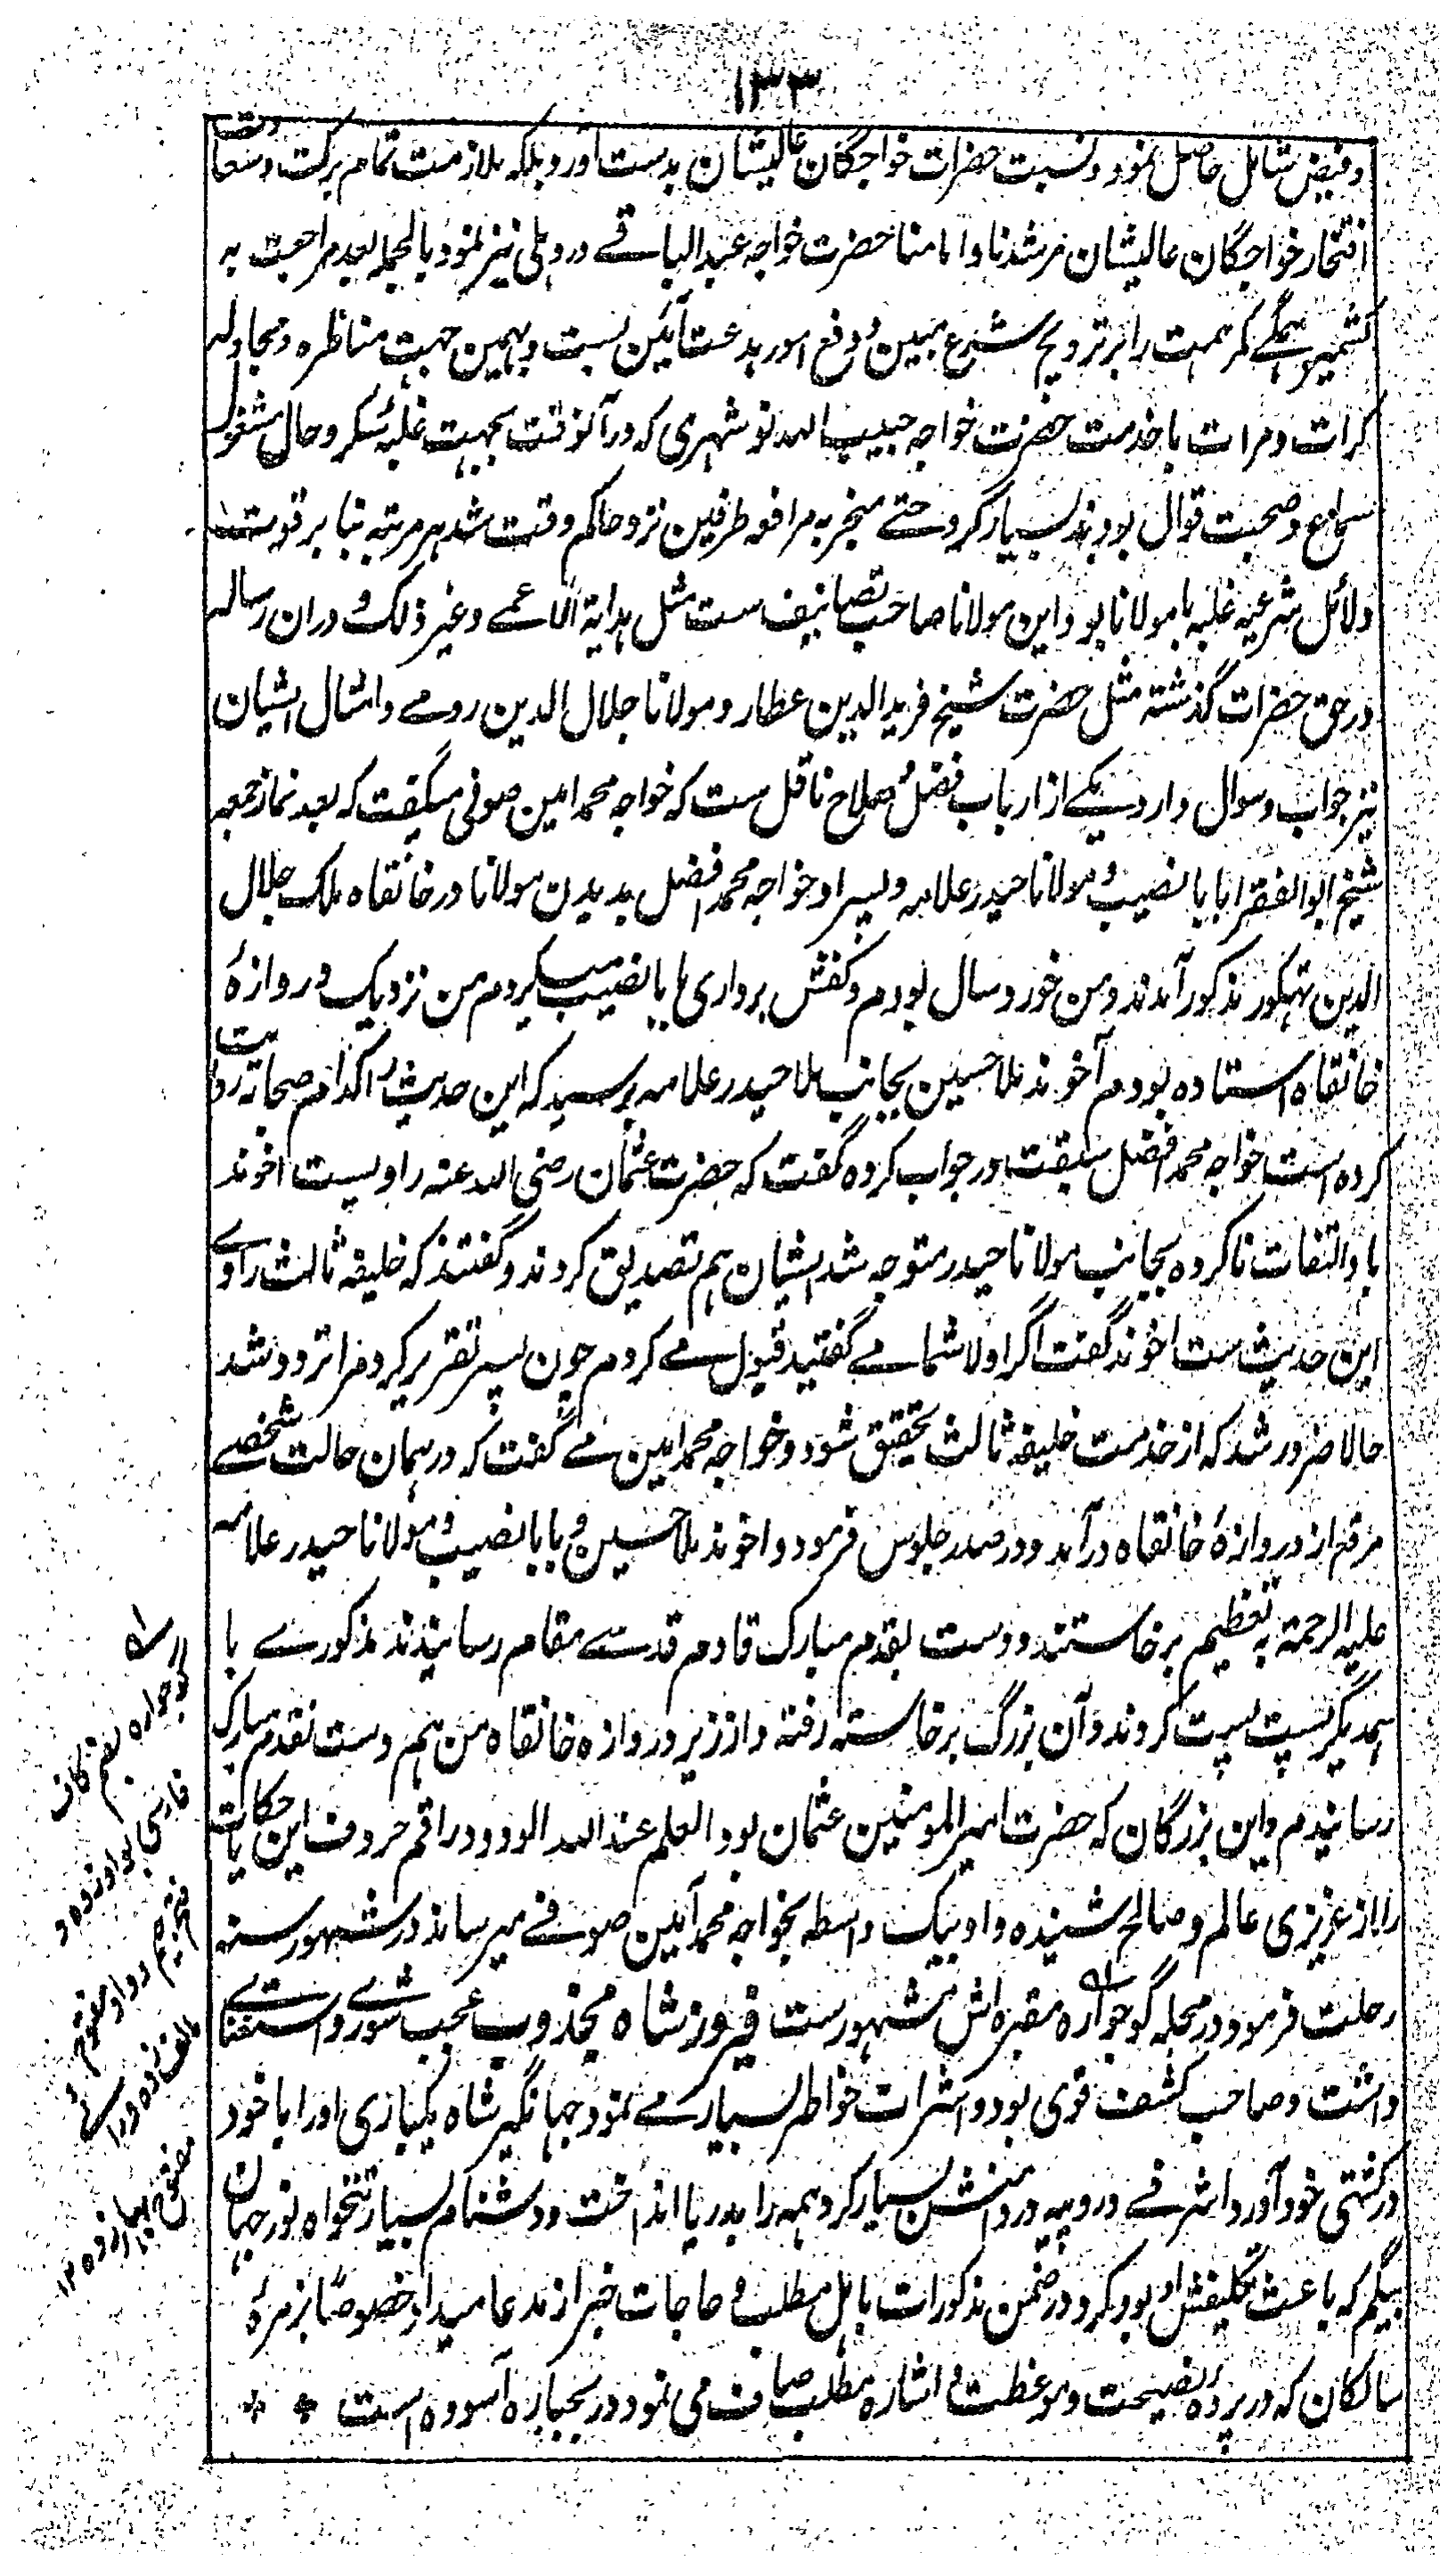 ۱۳۳
و فیض شامل حاصل نمود و نسبت حضرات خواجگان عالیشان بدست آورد بلکه ملازمت تمام برکت و سعادت
افتخار خواجگان عالیشان مرشدنا و امامنا حضرت خواجه عبد الباقے در دهلی نیز نمود بالجمله بعد مراجعت به
کشمیر همگے کمر همت را بر ترویج شرع مبین و دفع امور بدعت آئین بست و بهمین جهت مناظره و مجادله
کرات و مرات با خدمت حضرت خواجه حبیب الله نوشهری که در آنوقت بجهت غلبۀ سکر و حال مشغول
سماع و صحبت قوال بودند بسیار کرد حتے منجر به مرافعه طرفین نزد حاکم وقت شد هر مرتبه بنا بر قوت
دلائل شرعیه غلبه با مولانا بود و این مولانا صاحب تصانیف ست مثل هدایة الاعمے و غیر ذلک و در ان رساله
در حق حضرات گذشته مثل حضرت شیخ فرید الدین عطار و مولانا جلال الدین رومے و امثال ایشان
نیز جواب و سوال دارد یکے از ارباب فضل و صلاح ناقل ست که خواجه محمد امین صوفی میگفت که بعد نماز جمعه
شیخ ابو الفقرا بابا نصیب و مولانا حیدر علامه و پسر او خواجه محمد افضل بدیدن مولانا در خانقاه ملک جلال
الدین تهکور مذکور آمدند و من خورد سال بودم و کفش برداری بابا نصیب میکردم من نزدیک دروازۀ
خانقاه استاده بودم آخوند ملا حسین بجانب ملا حیدر علامه پرسید که این حدیث را کدام صحابه روایت
کرده است خواجه محمد افضل سبقت در جواب کرده گفت که حضرت عثمان رضی الله عنه راویست اخوند
باو التفات ناکرده بجانب مولانا حیدر متوجه شد ایشان هم تصدیق کردند و گفتند که خلیفه ثالث راوے
این حدیث ست اخوند گفت اگر اولا شما مے گفتید قبول مے کردم چون پسر تقریر کرد مرا تردد شد
حالا ضرور شد که از خدمت خلیفه ثالث تحقیق شود و خواجه محمد امین مے گفت که در همان حالت شخصے
مرقع از دروازۀ خانقاه درآمد و در صدر جلوس فرمود و اخوند ملا حسین و بابا نصیب و مولانا حیدر علامه
علیه الرحمة به تعظیم برخاستند و دست بقدم مبارک قادم قدسے مقام رسانیدند مذکورے با
همدیگر پست پست کردند و آن بزرگ برخاسته رفته و از زیر دروازه خانقاه من هم دست بقدم مبارک
رسانیدم و این بزرگان که حضرت امیر المومنین عثمان بود العلم عند الله الودود راقم حروف این حکایات
را از عزیزی عالم و صالح شنیده و او بیک واسطه بخواجه محمد امین صوفے میرساند در شهور سنه
رحلت فرمود در محله گوجواره مقبره اش مشهورست فیروز شاه مجذوب عجب شورے و استغناے
داشت و صاحب کشف قوی بود و اشرات خواطر بسیار مے نمود جهانگیر شاه یکباری اورا با خود
در کشتی خود آورد و اشرفے و روپیه در دامنش بسیار کرد همه را بدریا انداخت و دشنام بسیار تنخواه نور جهان
بیگم که باعث تکلیفش او بود کرد و در ضمن مذکورات باهل مطلب و حاجات خبر از مدعا میداد خصوصاً بزمرۀ
سالکان که در پرده نصیحت و موعظت و اشاره مطلب صاف می نمود در بجباره آسوده است * *
گوجواره بضم کاف
فارسی بواو زده و
فتح جیم و واو مفتوح